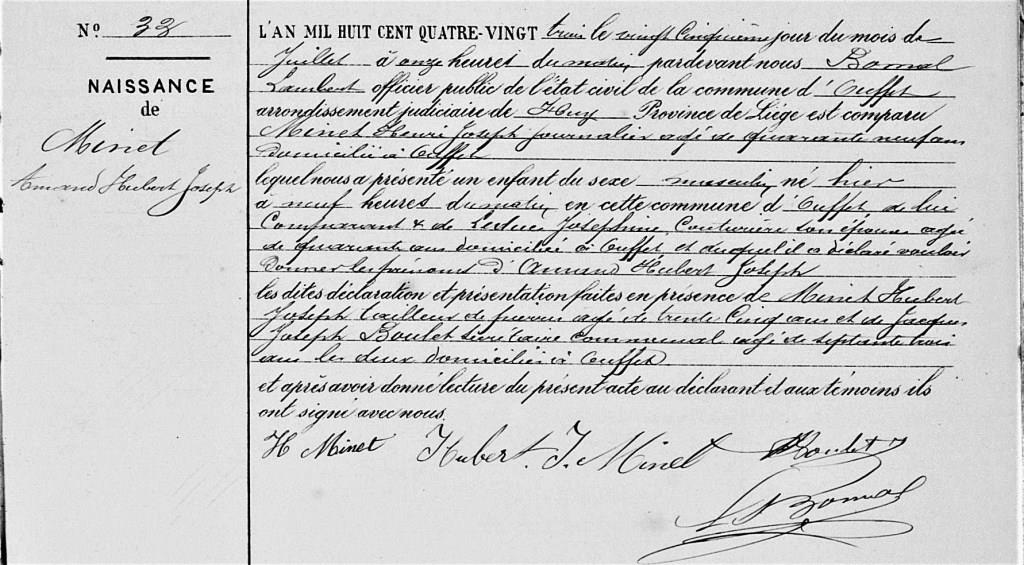 N° 32
NAISSANCE
de
Minet
Armand Hubert Joseph
L'AN MIL HUIT CENT QUATRE-VINGT trois le vingt cinquième jour du mois de
Juillet à onze heures du matin pardevant nous Bomal
Lambert officier public de l'état civil de la commune d'Ouffet
arrondissement judiciaire de Huy Province de Liége est comparu
Minet Henri Joseph journalier agé de quarante neuf ans
domicilié à Ouffet
lequel nous a présenté un enfant du sexe masculin né hier
à neuf heures du matin en cette commune d'Ouffet, de lui
Comparant & de Josephine, Couturière son épouse agée
de quarante ans domiciliée à Ouffet et auquel il a déclaré vouloir
donner les prénoms d'Armand Hubert Joseph
les dites déclaration et présentation faites en présence de Minet Hubert
Joseph tailleur de pierres agé de trente cinq ans et de Jacques
Joseph Boulet secrétaire communal agé de septante trois
ans les deux domiciliés à Ouffet
et après avoir donné lecture du présent acte au déclarant et aux témoins ils
ont signé avec nous.
H Minet Hubert. J. Minet Boulet
L Bomal